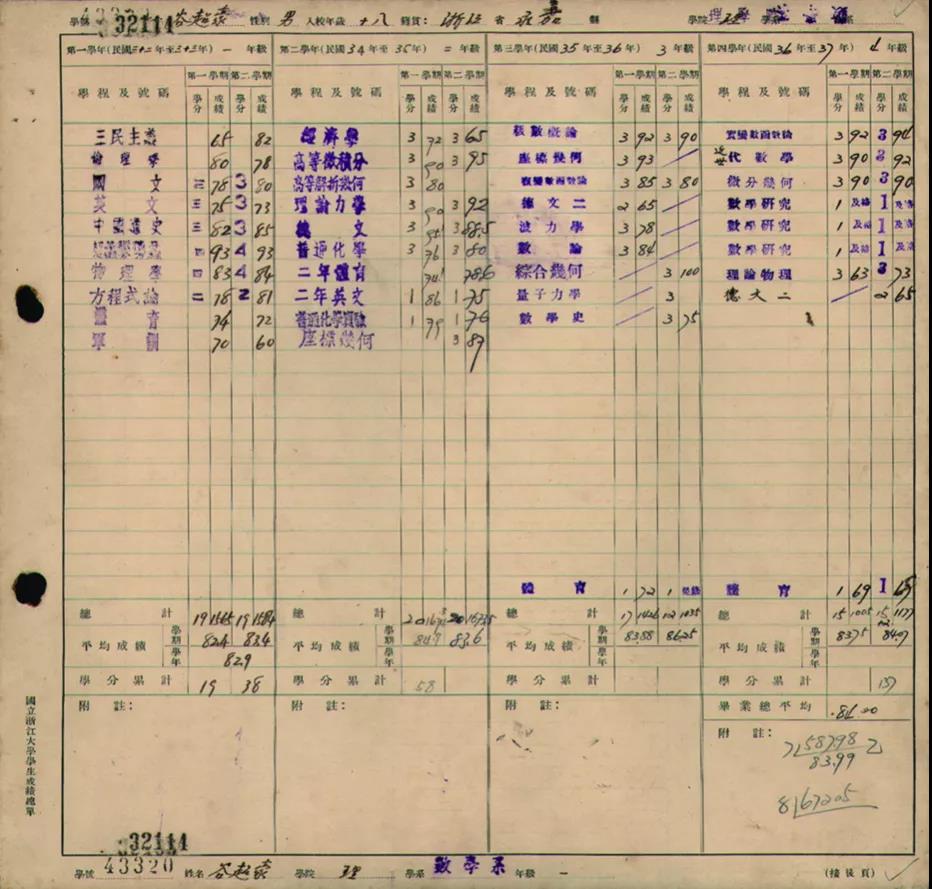 學號 32114 谷超豪 性別 男 入校年歲 十八 籍貫: 浙江 省 永嘉 縣 學院 理 學系
第一學年(民國 年至 年) 一 年級 第二學年(民國 34 年至 35 年) 二 年級 第三學年(民國 35 年至 36 年) 3 年級 第四學年(民國 36 年至 37 年) 4 年級
學程及號碼 第一學期 第二學期 學程及號碼 第一學期 第二學期 學程及號碼 第一學期 第二學期 學程及號碼 第一學期 第二學期
學分 成績 學分 成績 學分 成績 學分 成績 學分 成績 學分 成績 學分 成績 學分 成績
三民主義 65 82 經濟學 3 72 3 65 級數概論 3 92 3 90 實變數函數論 3 92 3 94
倫理學 80 78 高等微積分 3 90 3 95 座標幾何 3 93 近世代數學 3 90 3 92
國文 三 78 3 80 高等解析幾何 3 80 複變數函數論 3 85 3 80 微分幾何 3 90 3 90
英文 三 75 3 73 理論力學 3 90 3 92 德文二 2 65 數學研究 1 及格 1 及格
中國通史 三 82 3 85 德文 3 3 88.5 波力學 3 78 數學研究 1 及格 1 及格
四 93 4 93 普通化學 3 76 3 80 數論 3 84 數學研究 1 及格 1 及格
物理學 四 83 4 84 二年體育 74 78.6 綜合幾何 3 100 理論物理 3 63 3 73
方程式論 二 78 2 81 二年英文 1 86 1 75 量子力學 3 德文二 2 65
體育 74 72 普通化學實驗 1 79 1 76 數學史 3 75
軍訓 70 60 座標幾何 3 87
體育 1 72 1 體育 1 69 1 65
總計 19 1565 19 1584 總計 20 總計 17 1426 12 1035 總計 15 1005 15 1177
平均成績 學期 82.4 83.4 平均成績 學期 84.9 83.6 平均成績 學期 83.88 86.25 平均成績 學期 83.75 84.07
學年 82.9 學年 學年 學年
學分累計 19 38 學分累計 58 學分累計 學分累計 137
畢業總平均 84.20
附註: 附註: 附註: 附註:
58798
83.99
8167205
國立浙江大學學生成績總單
32114
學號 43320 姓名 谷超豪 學院 理 學系 數學系 年級 一 (接後頁)